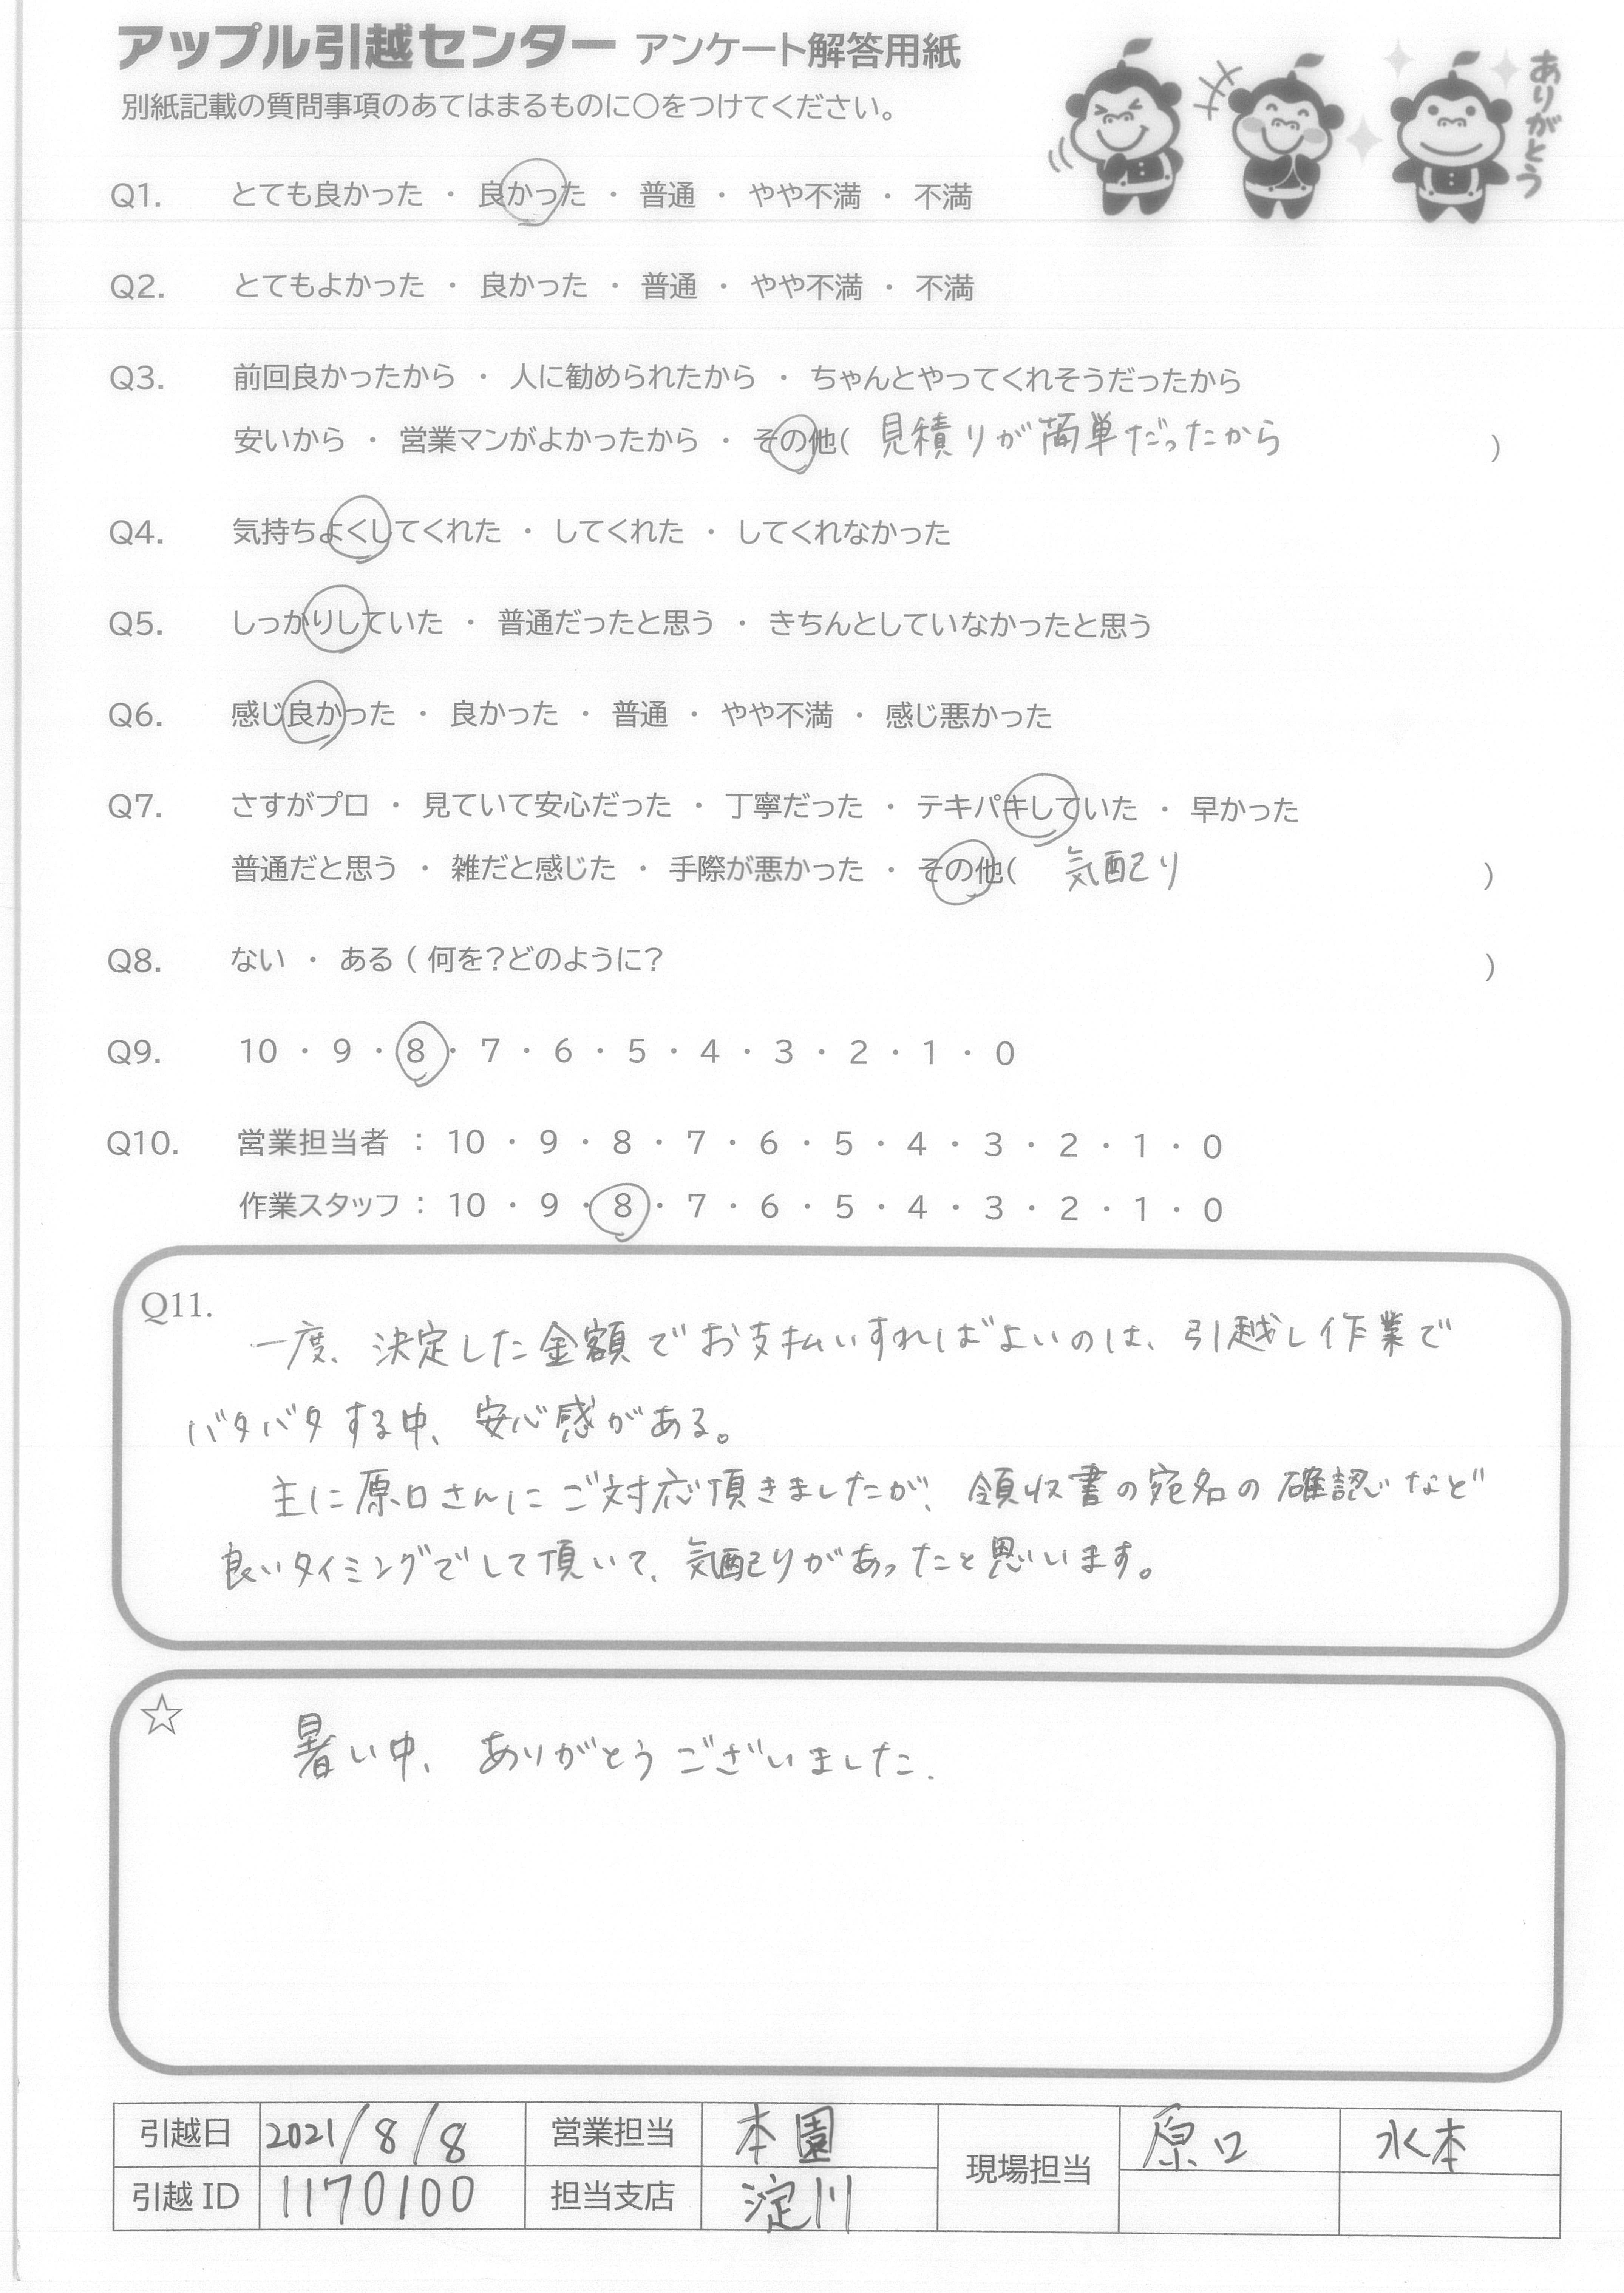 アップル引越センター アンケート解答用紙
別紙記載の質問事項のあてはまるものに○をつけてください。
ありがとう
Q1. とても良かった ・ 良かった ・ 普通 ・ やや不満 ・ 不満
Q2. とてもよかった ・ 良かった ・ 普通 ・ やや不満 ・ 不満
Q3. 前回良かったから ・ 人に勧められたから ・ ちゃんとやってくれそうだったから
安いから ・ 営業マンがよかったから ・ その他( 見積りが簡単だったから )
Q4. 気持ちよくしてくれた ・ してくれた ・ してくれなかった
Q5. しっかりしていた ・ 普通だったと思う ・ きちんとしていなかったと思う
Q6. 感じ良かった ・ 良かった ・ 普通 ・ やや不満 ・ 感じ悪かった
Q7. さすがプロ ・ 見ていて安心だった ・ 丁寧だった ・ テキパキしていた ・ 早かった
普通だと思う ・ 雑だと感じた ・ 手際が悪かった ・ その他( 気配り )
Q8. ない ・ ある ( 何を?どのように? )
Q9. 10 ・ 9 ・ 8 ・ 7 ・ 6 ・ 5 ・ 4 ・ 3 ・ 2 ・ 1 ・ 0
Q10. 営業担当者 : 10 ・ 9 ・ 8 ・ 7 ・ 6 ・ 5 ・ 4 ・ 3 ・ 2 ・ 1 ・ 0
作業スタッフ : 10 ・ 9 ・ 8 ・ 7 ・ 6 ・ 5 ・ 4 ・ 3 ・ 2 ・ 1 ・ 0
Q11.
一度、決定した金額でお支払いすればよいのは、引越し作業で
バタバタする中、安心感がある。
主に原口さんにご対応頂きましたが、領収書の宛名の確認など
良いタイミングでして頂いて、気配りがあったと思います。
☆
暑い中、ありがとうございました.
引越日 2021/8/8 営業担当 本園 現場担当 原口 水本
引越ID 1170100 担当支店 淀川